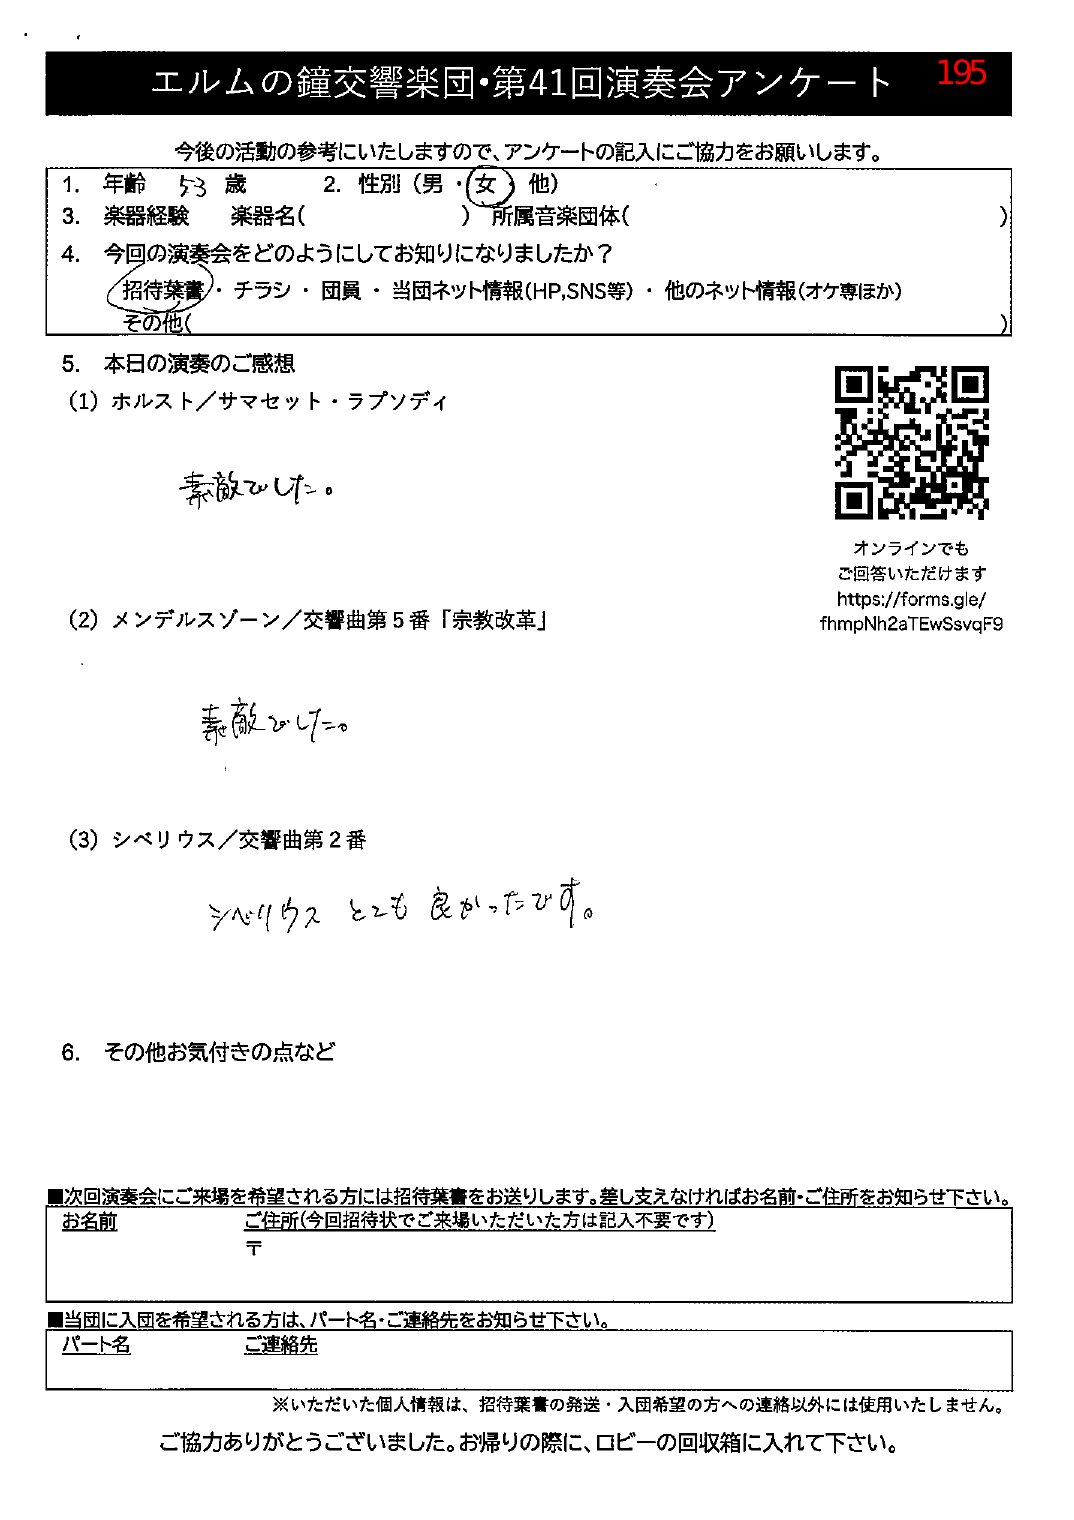 エルムの鐘交響楽団・第41回演奏会アンケート 195
今後の活動の参考にいたしますので、アンケートの記入にご協力をお願いします。
1. 年齢 53 歳 2. 性別（男・女・他）
3. 楽器経験 楽器名( ) 所属音楽団体( )
4. 今回の演奏会をどのようにしてお知りになりましたか？
招待葉書・ チラシ ・ 団員 ・ 当団ネット情報(HP,SNS等) ・ 他のネット情報(オケ専ほか)
その他( )
5. 本日の演奏のご感想
(1) ホルスト／サマセット・ラプソディ
素敵でした。
オンラインでも
ご回答いただけます
https://forms.gle/
fhmpNh2aTEwSsvqF9
(2) メンデルスゾーン／交響曲第５番「宗教改革」
素敵でした。
(3) シベリウス／交響曲第２番
シベリウス とても 良かったです。
6. その他お気付きの点など
■次回演奏会にご来場を希望される方には招待葉書をお送りします。差し支えなければお名前・ご住所をお知らせ下さい。
お名前 ご住所(今回招待状でご来場いただいた方は記入不要です)
〒
■当団に入団を希望される方は、パート名・ご連絡先をお知らせ下さい。
パート名 ご連絡先
※いただいた個人情報は、招待葉書の発送・入団希望の方への連絡以外には使用いたしません。
ご協力ありがとうございました。お帰りの際に、ロビーの回収箱に入れて下さい。